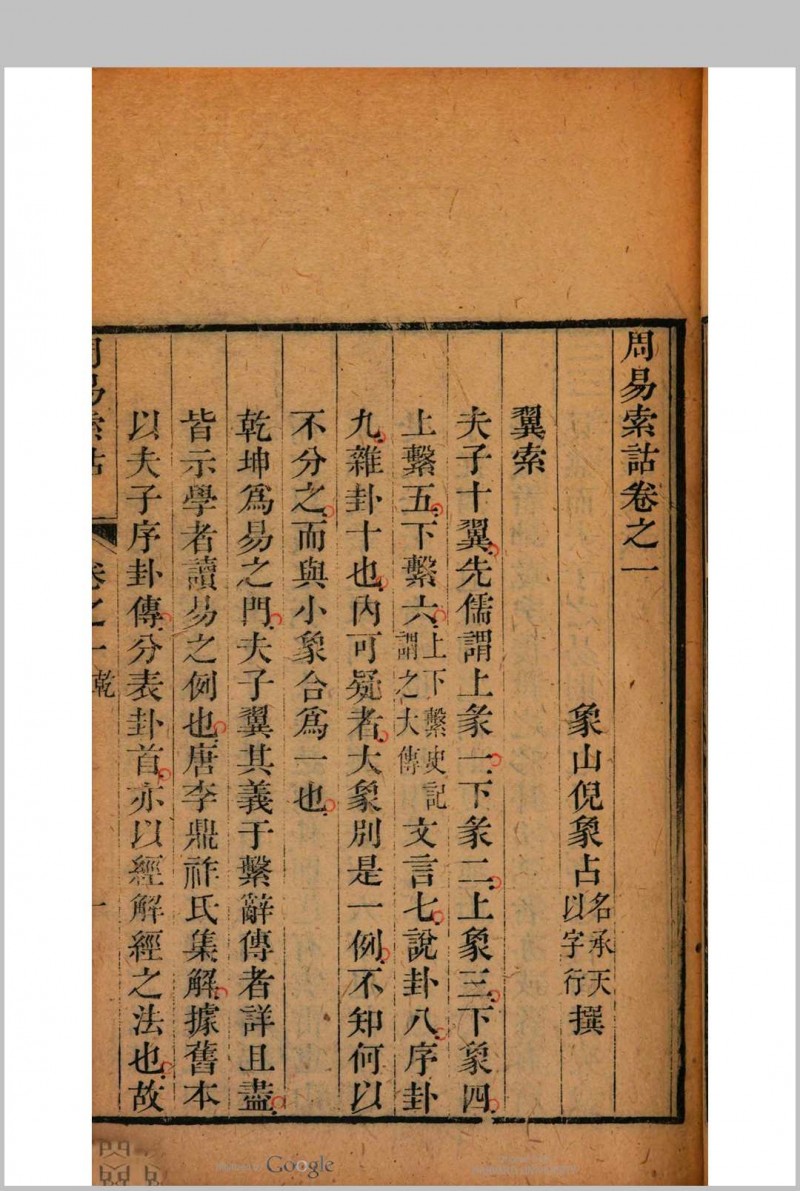 周易索詁卷之一
象山倪象占名承天以字行撰
翼索
夫子十翼先儒謂上彖一下彖二上象三下象四
上繫五下繫六上下繫史記謂之大傳文言七說卦八序卦
九雜卦十也內可疑者大象別是一例不知何以
不分之而與小象合爲一也
乾坤爲易之門夫子翼其義于繫辭傳者詳且盡
皆示學者讀易之例也唐李鼎祚氏集解據舊本
以夫子序卦傳分表卦首亦以經解經之法也故
周易索詁 卷之一 乾 一
Google